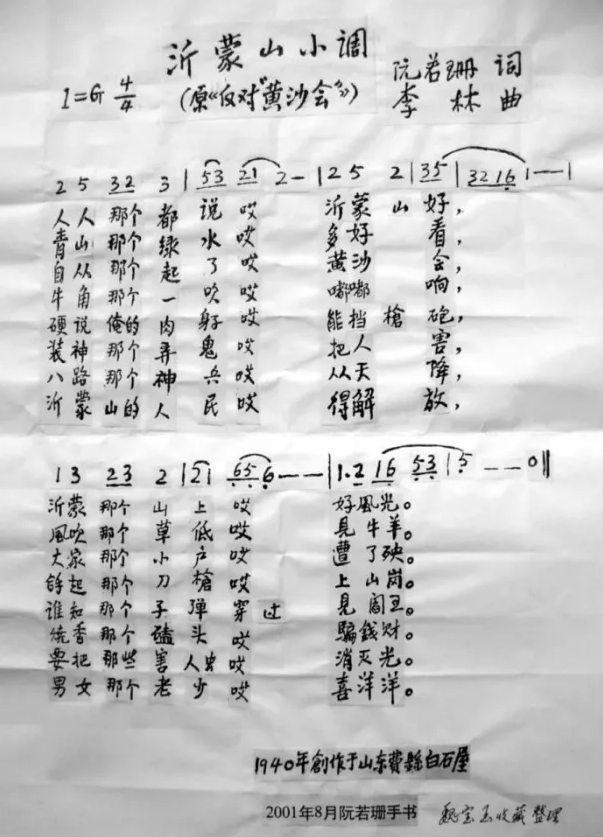 沂蒙山小调
1=G 4/4 (原《反对"黄沙会"》) 阮若珊 词
李 林 曲
2 5 32 3 | 53 21 2- | 2 5 2 | 35 | 3216 1 -- |
人人 那个 都 说 哎 沂蒙 山 好,
青山 那个 绿 水 哎 多好 看,
自从 那个 起 了 哎 黄沙 会,
牛角 那个 一 吹 哎 嘟嘟 响,
硬说 俺的 肉 身 哎 能挡 槍 砲,
装神 那个 弄 鬼 哎 把人 害,
八路 那个 神 兵 哎 从天 降,
沂蒙 山的 人 民 哎 得解 放,
1 3 23 2 | 21 65 6 -- | 1.2 16 53 | 5 -- 0 ‖
沂蒙 那个 山 上 哎 好風光。
風吹 那个 草 低 哎 見牛羊。
大家 那个 小 户 哎 遭了殃。
那个 刀 槍 哎 上山岗。
谁知 那个 子 弹 穿 过 見阎王。
烧香 那个 磕 头 哎 騙錢财。
要把 那些 害 人虫 哎 消灭光。
男女 那个 老 少 哎 喜洋洋。
1940年創作于山东费縣白石屋
2001年8月阮若珊手书 魏宝玉收藏整理